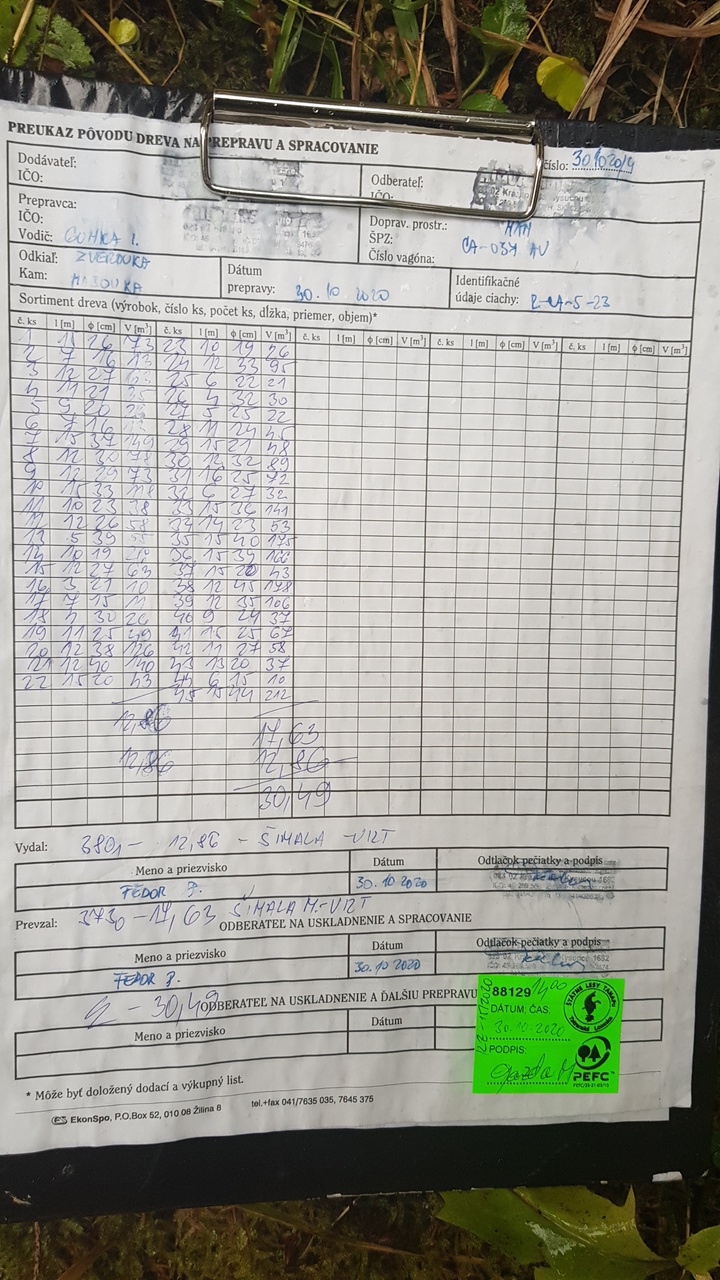 PREUKAZ PÔVODU DREVA NA PREPRAVU A SPRACOVANIE
číslo: 30102014
Dodávateľ:
IČO:
Odberateľ:
IČO:
Prepravca:
IČO:
Vodič: GOMKA I.
Doprav. prostr.: MAN
ŠPZ: CA-037 AU
Číslo vagóna:
Odkiaľ: ZVEROVKA
Kam:
Dátum
prepravy: 30.10.2020
Identifikačné
údaje ciachy: R-LA-5-23
Sortiment dreva (výrobok, číslo ks, počet ks, dĺžka, priemer, objem)*
č. ks l [m] ϕ [cm] V [m³] č. ks l [m] ϕ [cm] V [m³] č. ks l [m] ϕ [cm] V [m³] č. ks l [m] ϕ [cm] V [m³] č. ks l [m] ϕ [cm] V [m³]
1 26 73 23 10 19 26
2 7 16 13 24 12 33 95
3 12 27 25 6 22 21
4 11 21 35 26 4 32 30
5 9 20 27 5 25 22
6 7 16 13 28 11 24 45
7 15 37 149 29 15 21 48
8 12 30 78 30 12 32 89
9 12 29 73 31 16 25 72
10 15 33 118 32 6 27 32
11 10 23 38 33 15 36 141
12 12 26 58 34 14 23 53
13 5 39 55 35 15 40 175
14 10 19 26 36 15 39 166
15 12 27 63 37 15 20 43
16 3 21 10 38 12 45 178
17 7 15 11 39 12 35 106
18 4 30 26 40 9 24 37
19 11 25 49 41 15 25 67
20 12 38 126 42 11 27 58
21 12 40 140 43 13 20 37
22 15 20 43 44 6 15 10
45 15 44 212
12,86
17,63
12,86 12,86
30,49
Vydal: 3801- 12,86 - ŠIMALA -VRT
Meno a priezvisko Dátum Odtlačok pečiatky a podpis
FEDOR J. 30.10 2020
Prevzal: 3730-17,63 ŠIMALA M.-VRT
ODBERATEĽ NA USKLADNENIE A SPRACOVANIE
Meno a priezvisko Dátum Odtlačok pečiatky a podpis
FEDOR J. 30.10 2020
Σ - 30,49
ODBERATEĽ NA USKLADNENIE A ĎALŠIU PREPRAVU
Meno a priezvisko Dátum
88129 1400
DÁTUM, ČAS:
30.10.2020
PODPIS:
ŠTÁTNE LESY TANAPu
Tatranská Lomnica
PEFC
* Môže byť doložený dodací a výkupný list.
EkonSpo, P.O.Box 52, 010 08 Žilina 8 tel.+fax 041/7635 035, 7645 375